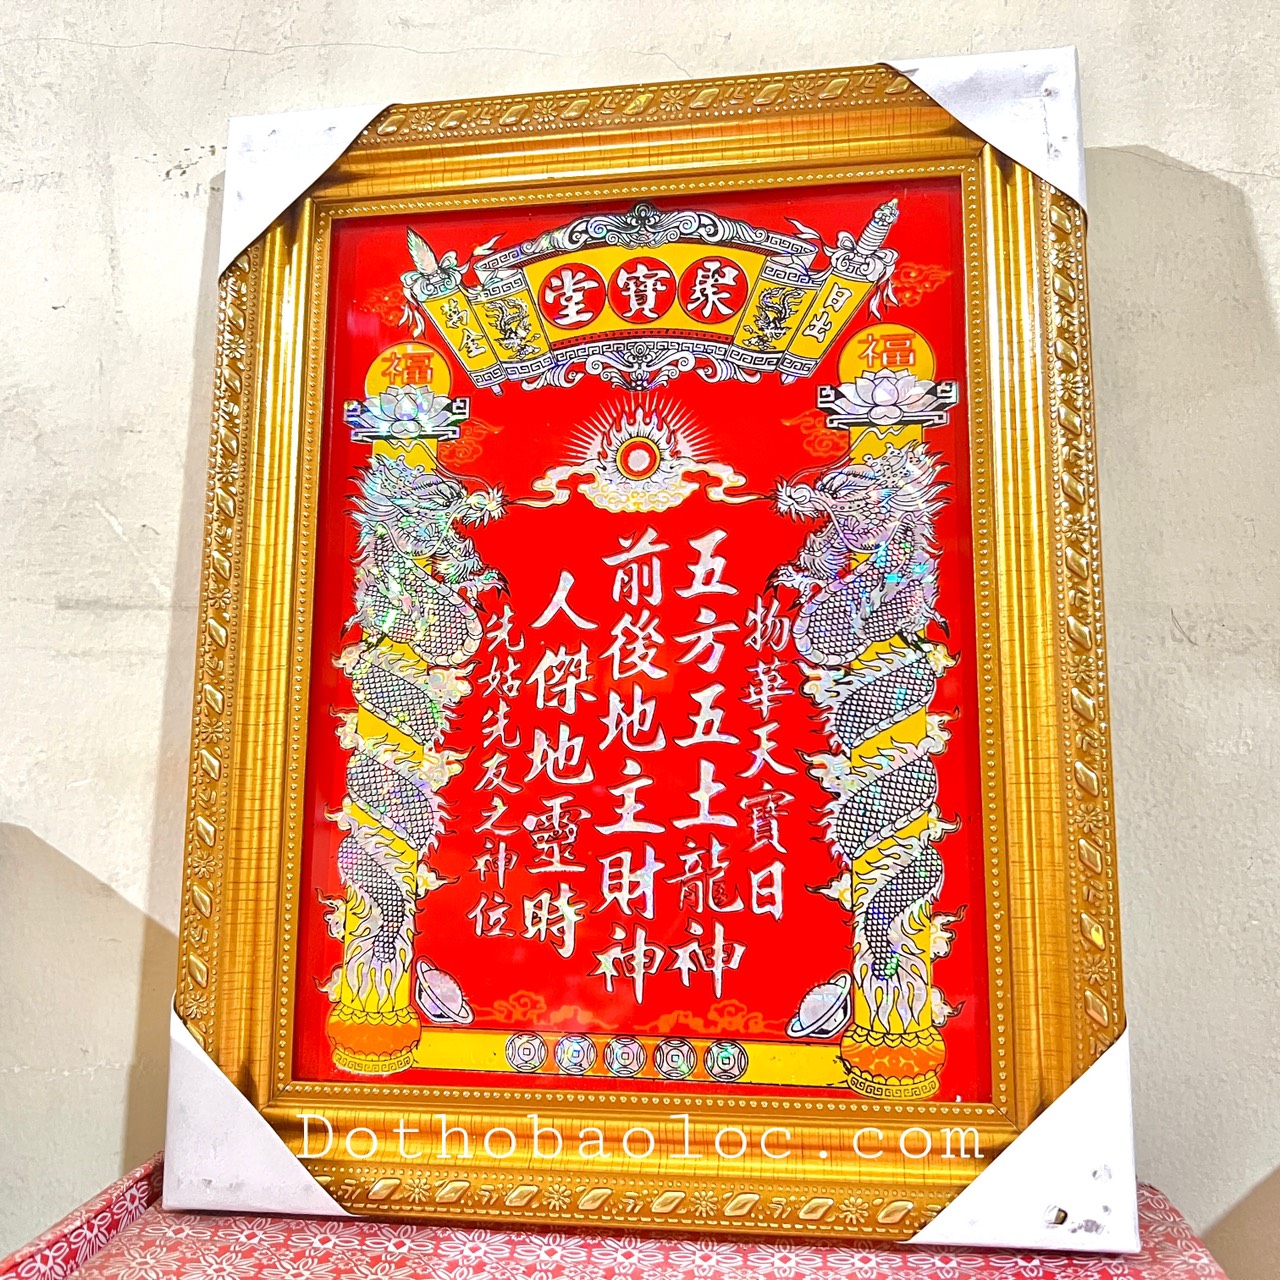 聚寶堂
日出
萬金
福
福
物華天寶日
五方五土龍神
前後地主財神
人傑地靈時
先姑先友之神位
Dothobaoloc.com